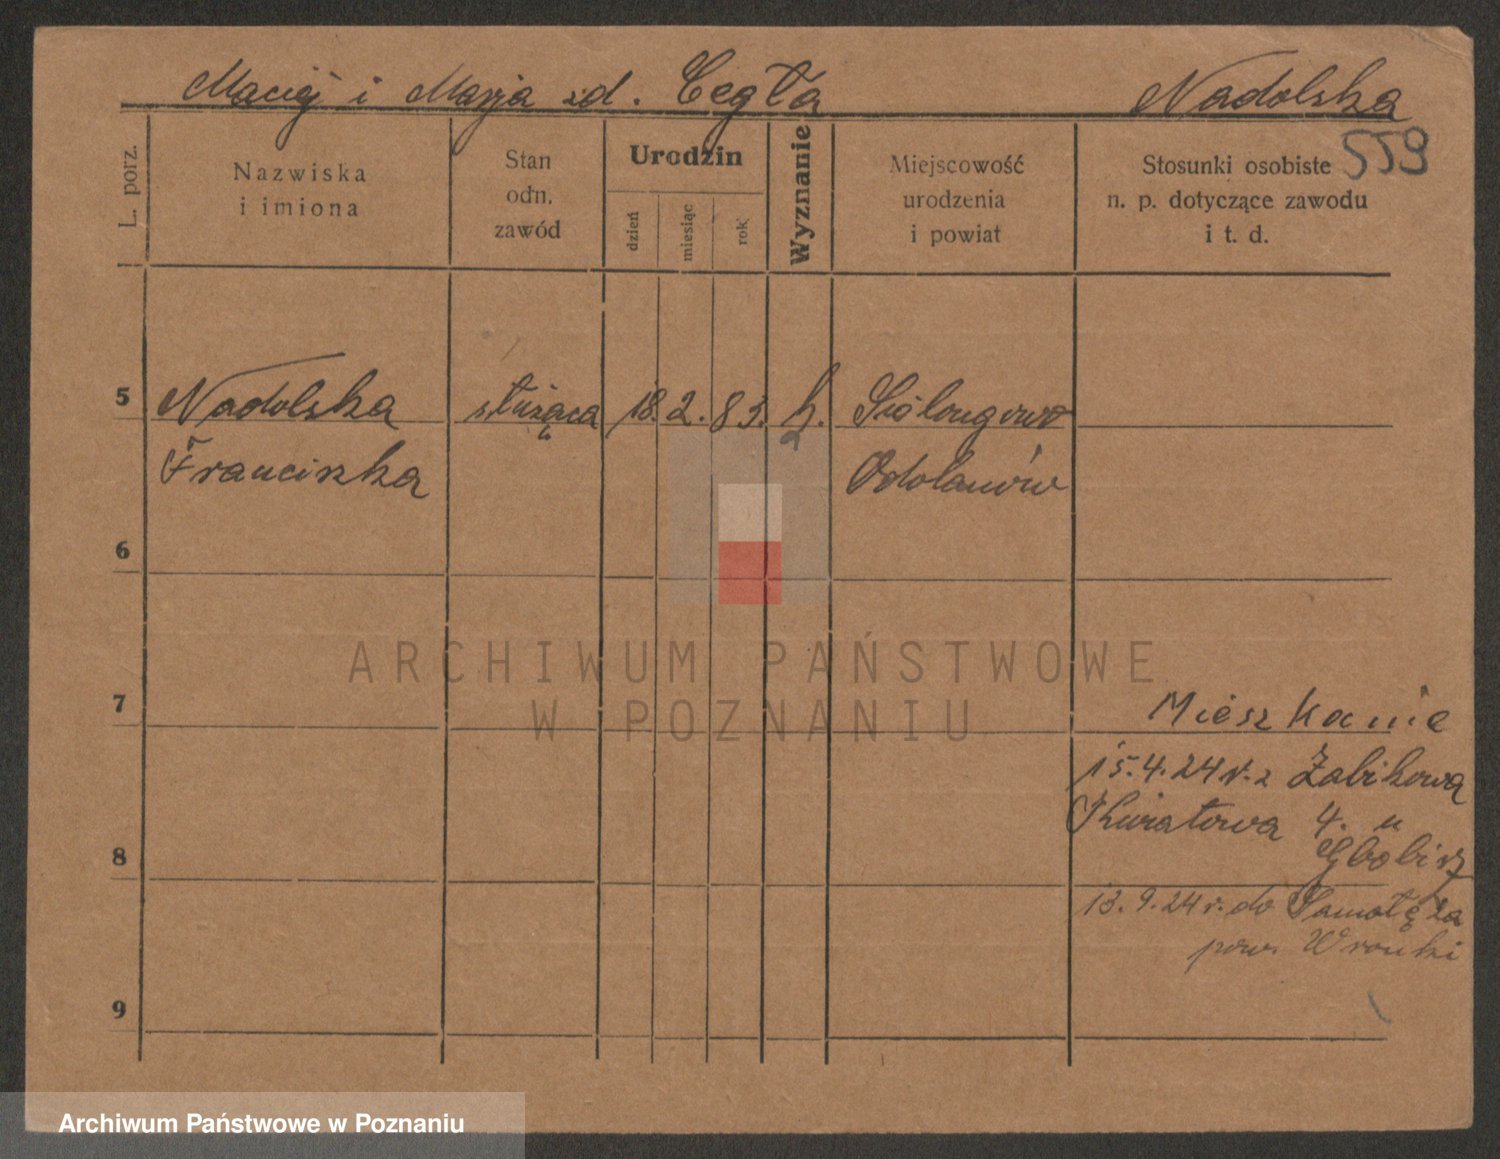 Maciej i Marja zd. Cegła Nadolska
559
L. porz.
Nazwiska
i imiona
Stan
odn.
zawód
Urodzin
dzień
miesiąc
rok
Wyznanie
Miejscowość
urodzenia
i powiat
Stosunki osobiste
n. p. dotyczące zawodu
i t. d.
5 Nadolska służąca 18. 2. 83. k.
Franciszka Odolanów
6
7
Mieszkanie
15.4.24 r. z Żabikowa
Kwiatowa 4. u
8
13.9.24 r. do Samołęża
pow. Wronki
9
ARCHIWUM PAŃSTWOWE
W POZNANIU
Archiwum Państwowe w Poznaniu